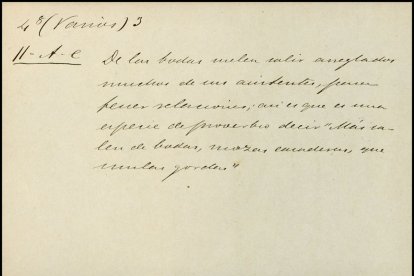 4º (Varios) 3
II-A-c
De las bodas suelen salir arreglados
muchos de sus asistentes, para
tener relaciones; asi es que es una
especie de proverbio decir "Más sa-
len de bodas, mozas casaderas, que
mulas gordas"